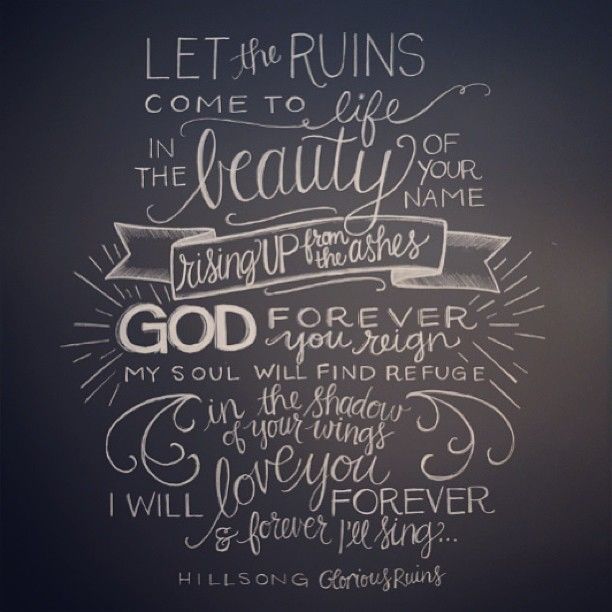 LET the RUINS
COME TO life
IN THE beauty OF YOUR NAME
rising UP from the ashes
GOD FOREVER you reign
MY SOUL WILL FIND REFUGE
in the shadow
of your wings
I WILL love you FOREVER
& forever I'll sing...
HILLSONG Glorious Ruins